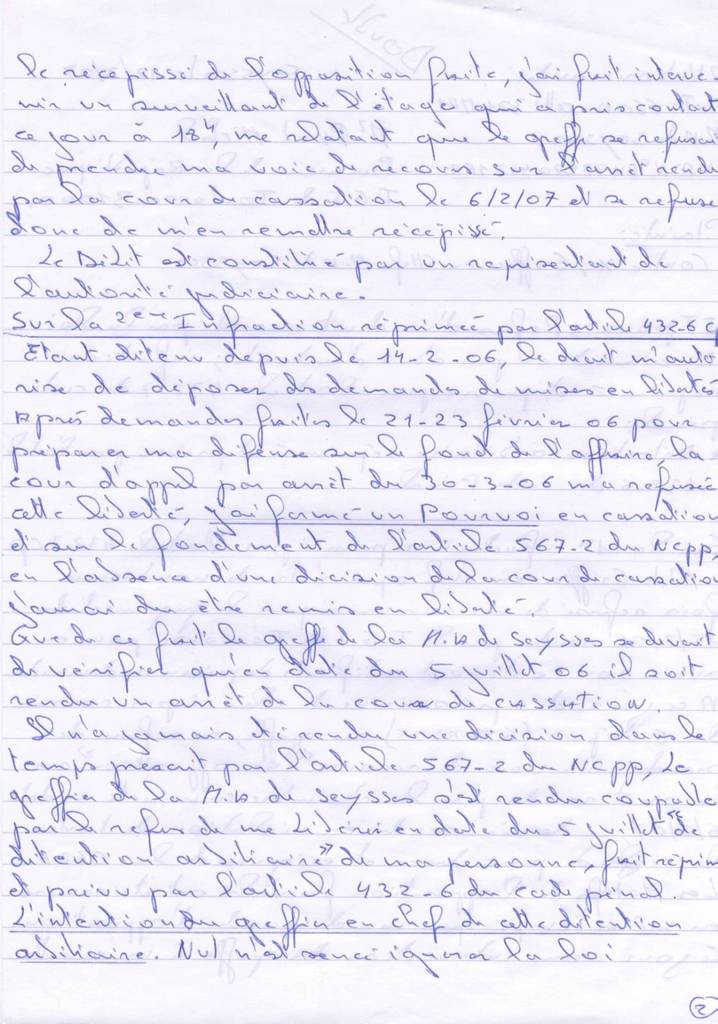 le récépissé de l'opposition faite, j'ai fait interve-
nir un surveillant de l'étage qui a pris contact
ce jour à 18H, me relatant que le greffe se refusait
de prendre ma voie de recours sur l'arrêt rendu
par la cour de cassation le 6/2/07 et se refuse
donc de m'en remettre récépissé.
Le Délit est constitué par un représentant de
l'autorité judiciaire.
Sur la 2eme Infraction réprimée par l'article 432-6 cp
Etant détenu depuis le 14-2-06, le droit m'auto
rise de déposer des demandes de mises en libertés
Après demandes faites le 21-23 février 06 pour
préparer ma défense sur le fond de l'affaire, la
cour d'appel par arrêt du 30-3-06 m'a refusée
cette liberté, j'ai formé un Pourvoi en cassation
et sur le fondement de l'article 567-2 du NCPP,
en l'absence d'une décision de la cour de cassation
j'amai du être remis en liberté.
Que de ce fait le greffe de la M.A de Seysses se devait
de vérifier qu'en date du 5 juillet 06 il soit
rendu un arrêt de la cour de CASSATION.
Il n'a jamais été rendu une décision dans le
temps prescrit par l'article 567-2 du NCPP, Le
greffier de la M.A de Seysses s'est rendu coupable
par le refus de me Libérer en date du 5 juillet "de
détention arbitraire" de ma personne, fait réprimé
et prévu par l'article 432-6 du code pénal.
L'intention du greffier en chef de cette détention
arbitraire. Nul n'est sencé ignorer la loi
2